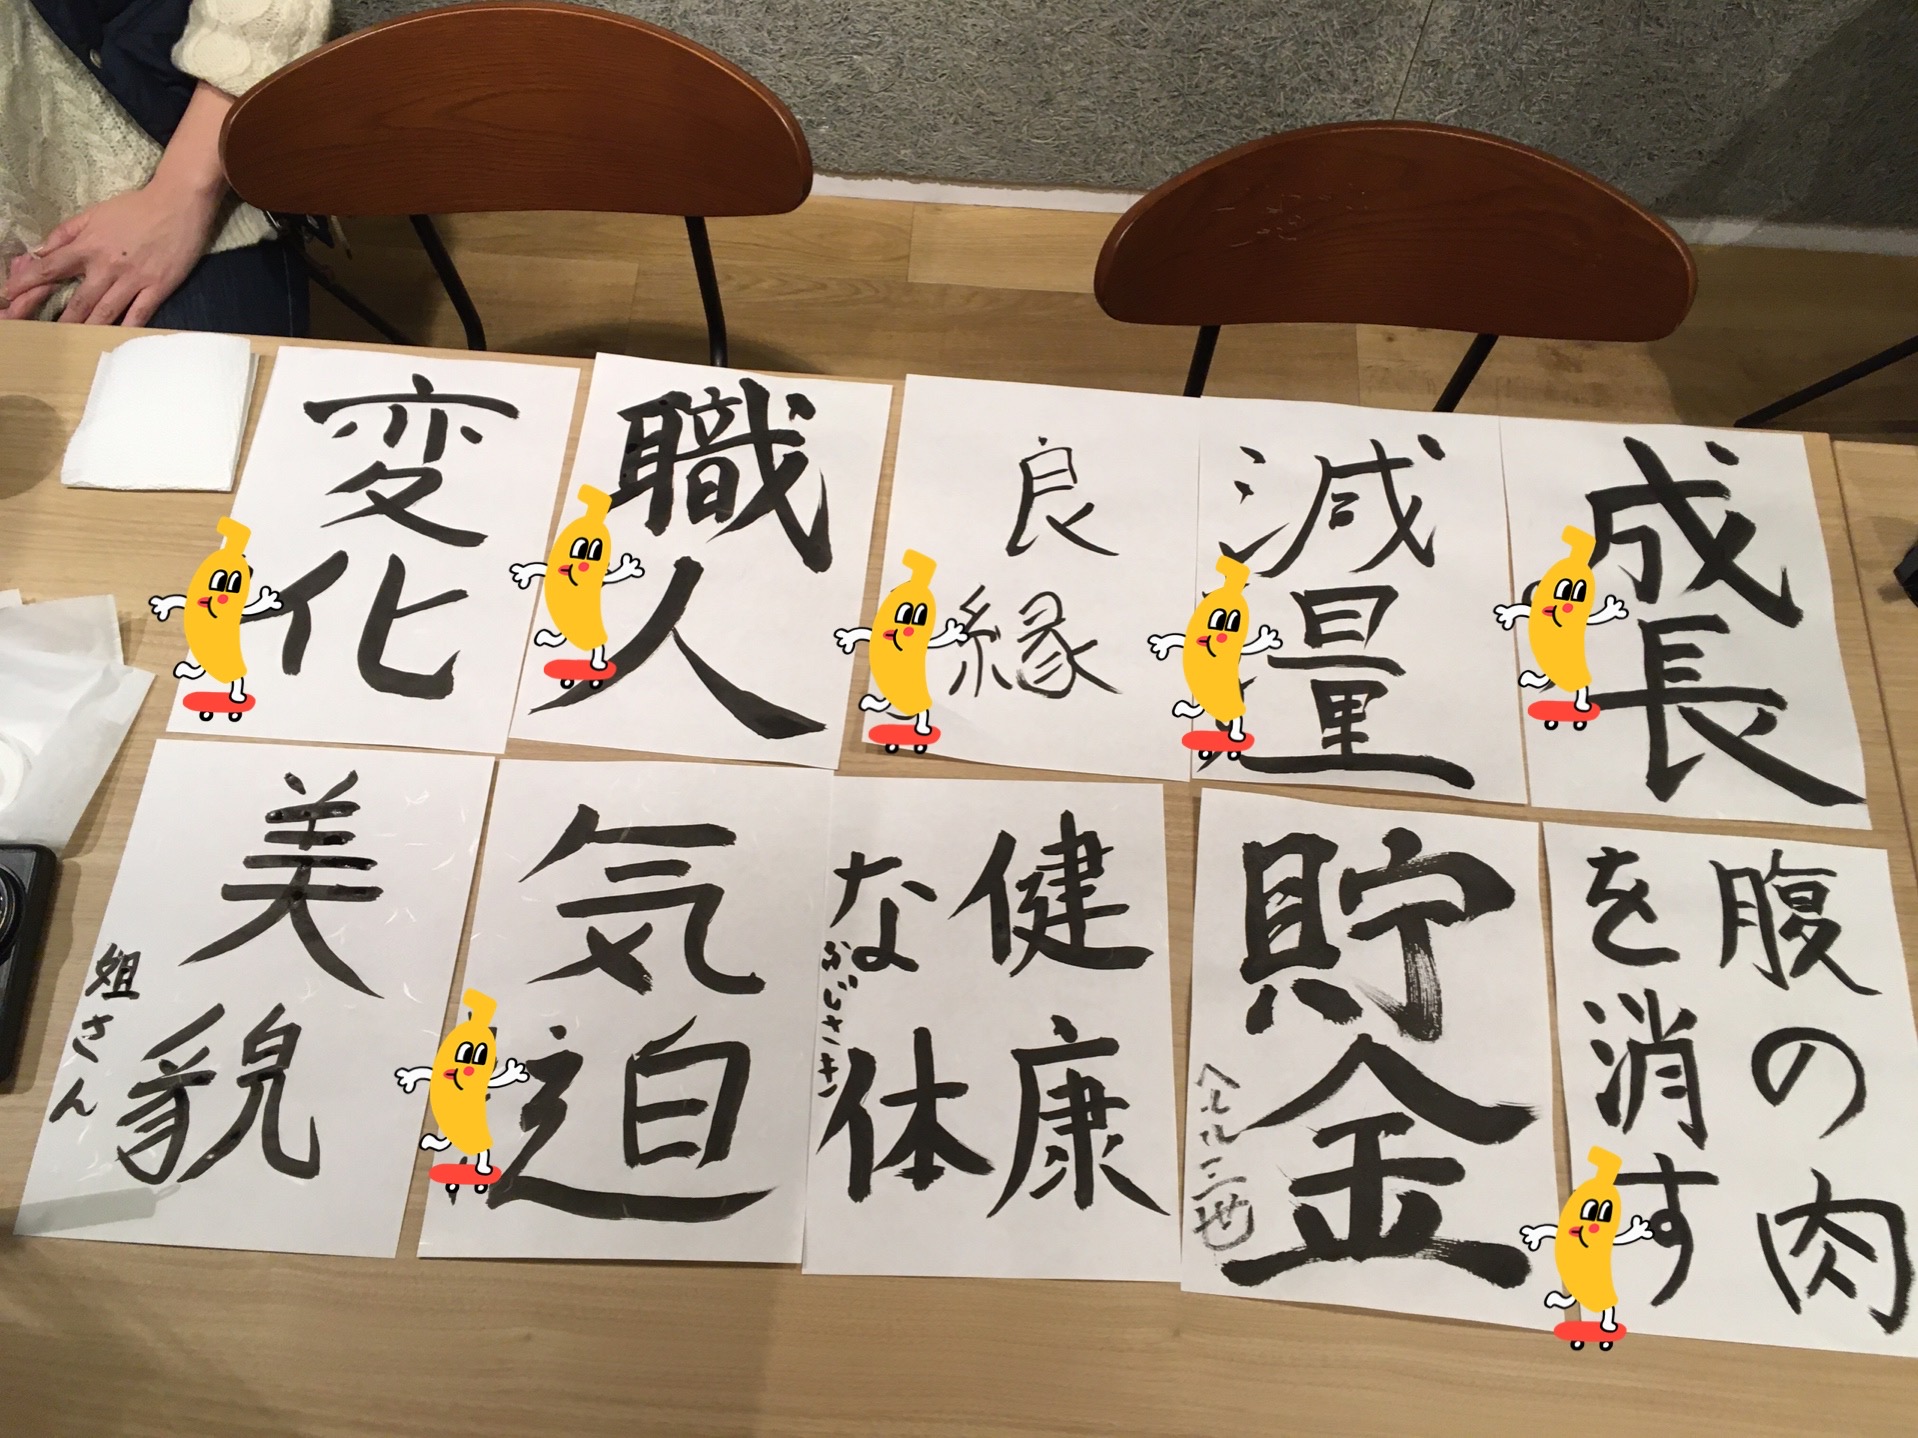 変化
職人
良縁
減量
成長
美貌
姐さん
気迫
健康
な体
ふじさキン
貯金
ヘルル三世
腹の肉
を消す